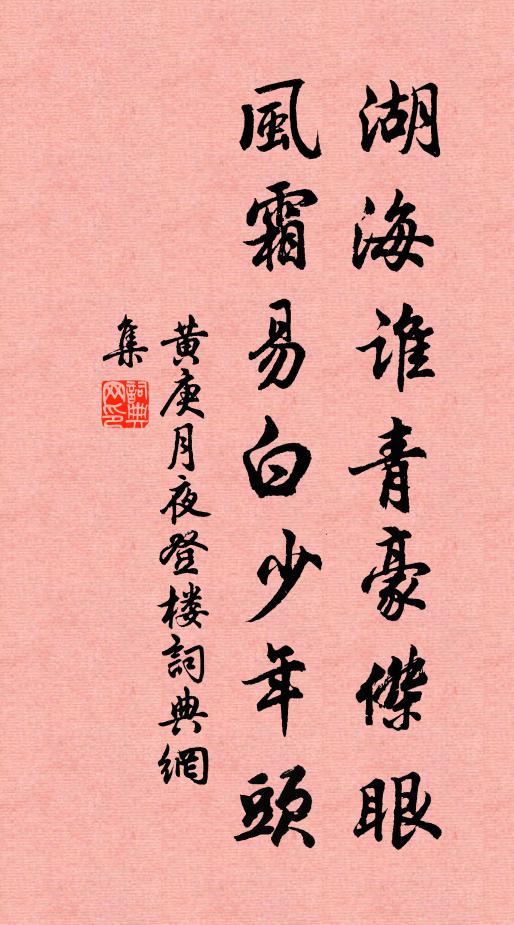 湖海誰青豪傑眼
風霜易白少年頭
黄庚月夜登楼詞典網
集
詞典網印